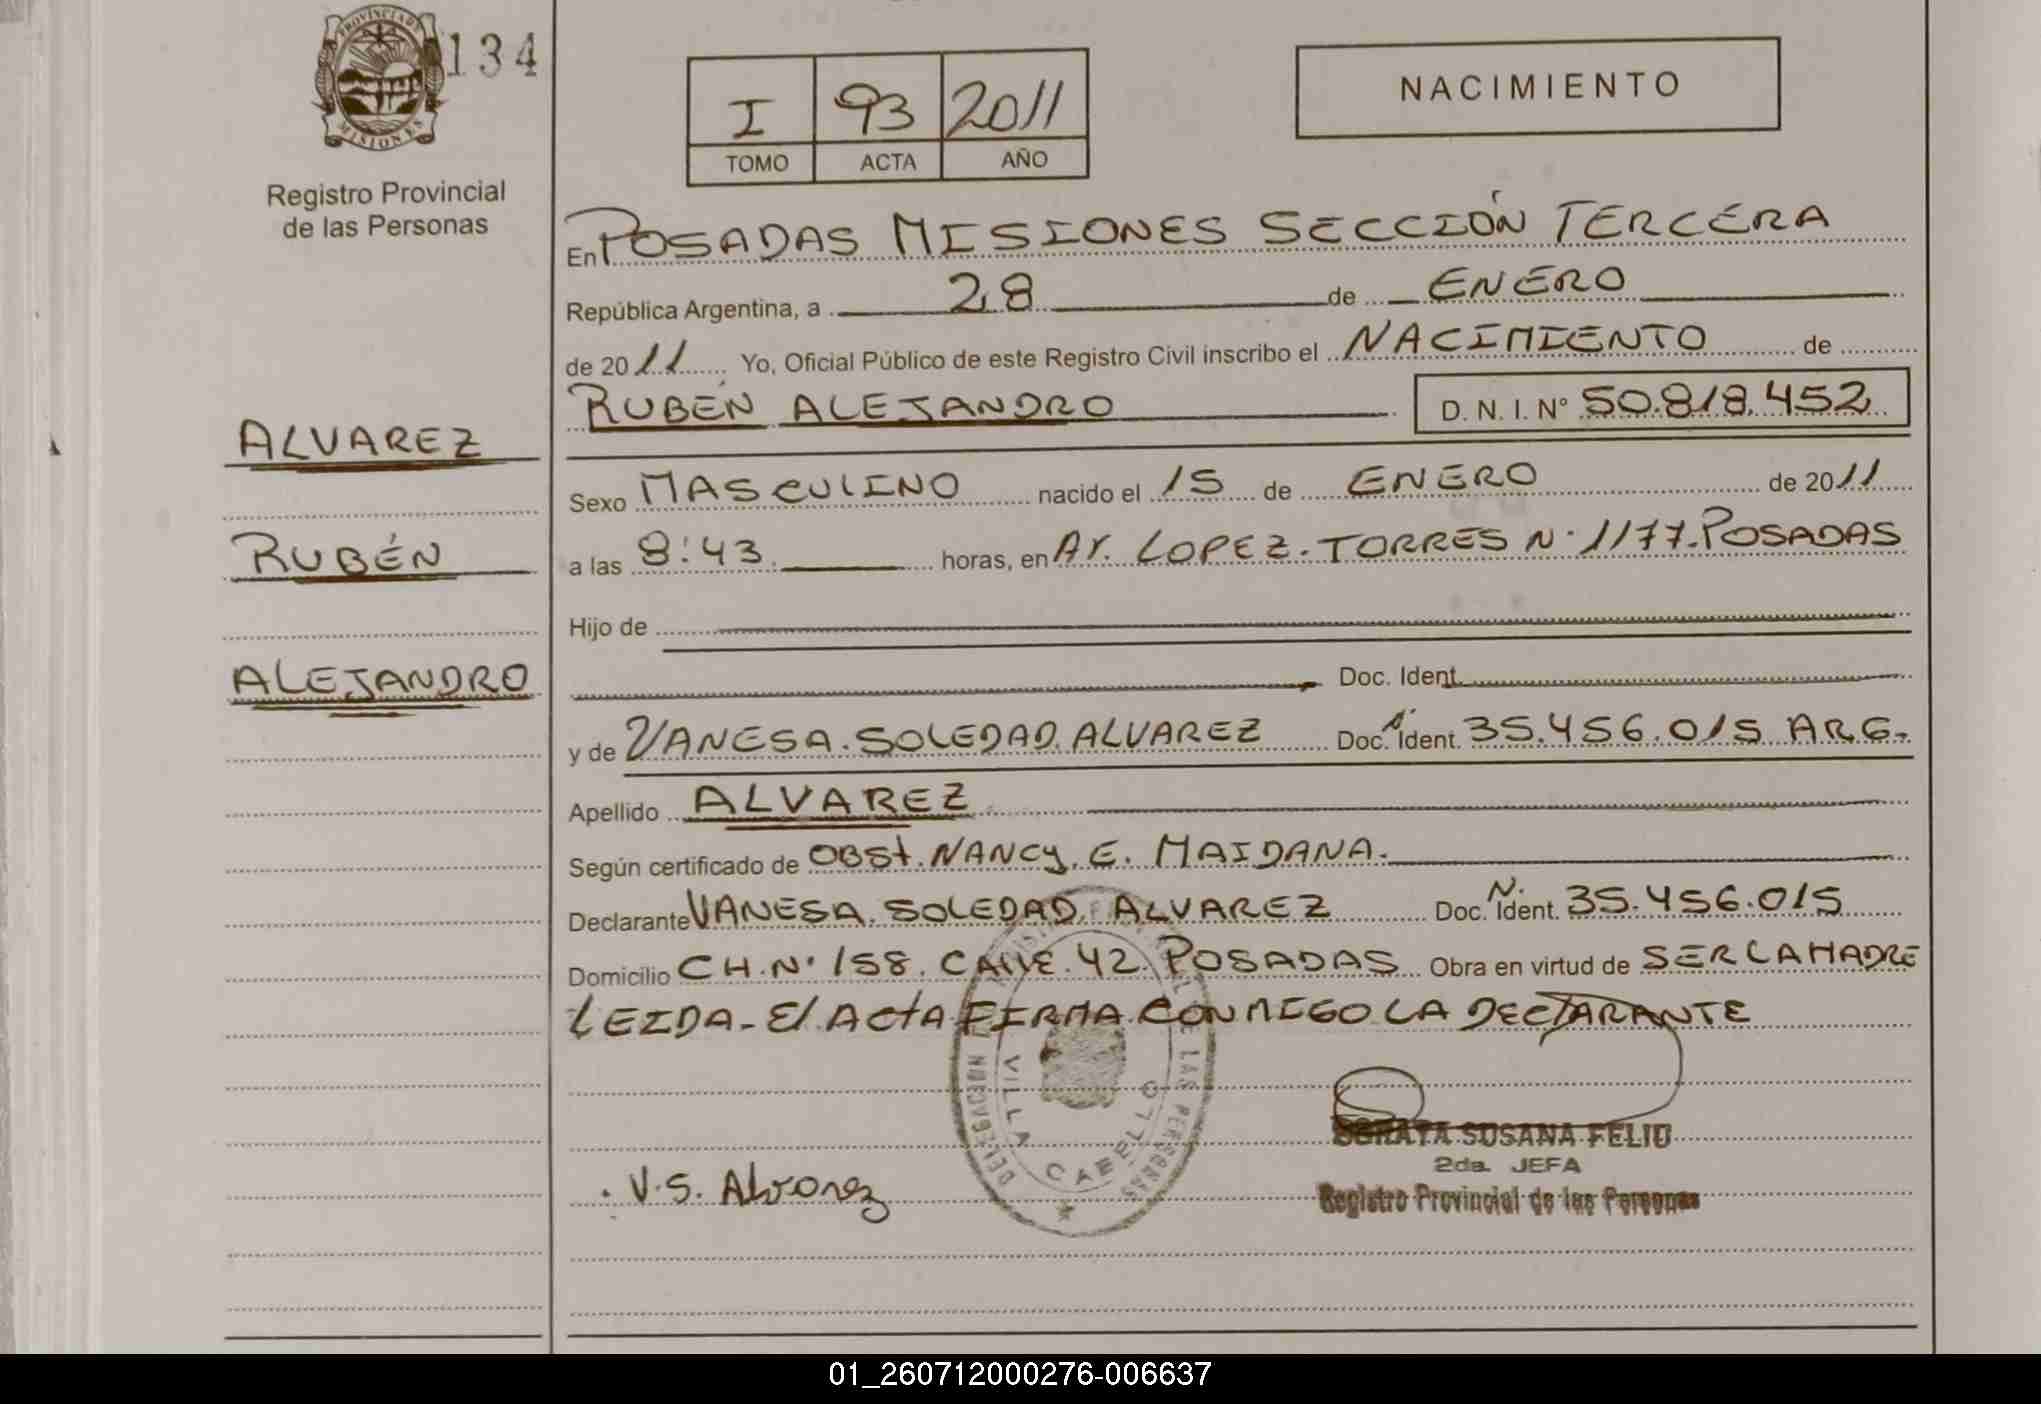 PROVINCIA DE
MISIONES
134
Registro Provincial
de las Personas
I 93 2011
TOMO ACTA AÑO
NACIMIENTO
En POSADAS MISIONES SECCIÓN TERCERA
República Argentina, a 28 de ENERO
de 2011 Yo, Oficial Público de este Registro Civil inscribo el NACIMIENTO de
RUBÉN ALEJANDRO D. N. I. Nº 50.818.452
ALVAREZ
RUBÉN
ALEJANDRO
Sexo MASCULINO nacido el 15 de ENERO de 2011
a las 8:43 horas, en AV. LOPEZ. TORRES N. 1177. POSADAS
Hijo de
Doc. Ident.
y de VANESA. SOLEDAD. ALVAREZ Doc. N. Ident. 35.456.015 ARG.
Apellido ALVAREZ
Según certificado de OBSt. NANCY. E. MAIDANA.
Declarante VANESA. SOLEDAD. ALVAREZ Doc. N. Ident. 35.456.015
Domicilio CH. N. 158. CALLE. 42. POSADAS Obra en virtud de SER LA MADRE
LEIDA - El ACTA FIRMA CONMIGO LA DECLARANTE
DELEGACION VILLA CABELLO
DE LAS PERSONAS
V.S. Alvarez
SORAYA SUSANA FELIU
2da. JEFA
Registro Provincial de las Personas
01_260712000276-006637